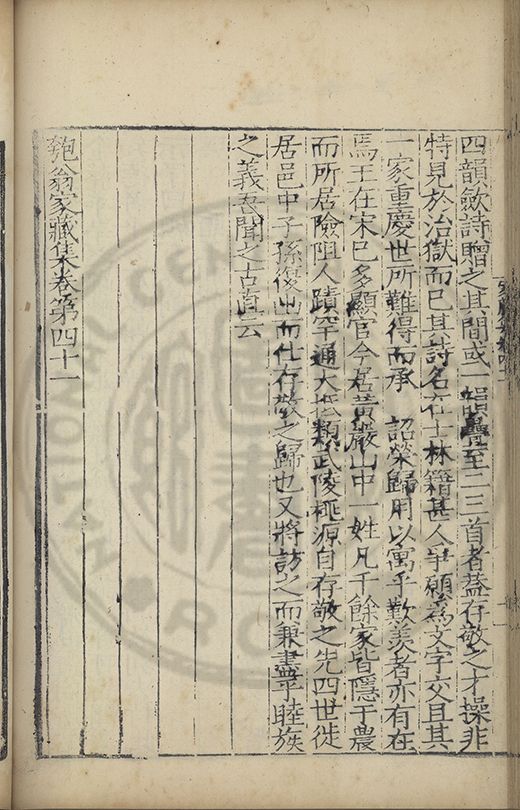 四韻歛詩贈之其間或一韻疊至二三首者葢存敬之才操非
特見於治獄而已其詩名在士林籍甚人爭願為文字交且其
一家重慶世所難得而承　詔榮歸用以寓乎歎羨者亦有在
焉王在宋已多顯官今居黃巖山中一姓凡千餘家皆隱于農
而所居險阻人蹟罕通大抵類武陵桃源自存敬之先四世徙
居邑中子孫復出而仕存敬之歸也又將訪之而兼盡乎睦族
之義吾聞之古直云
匏翁家藏集卷第四十一